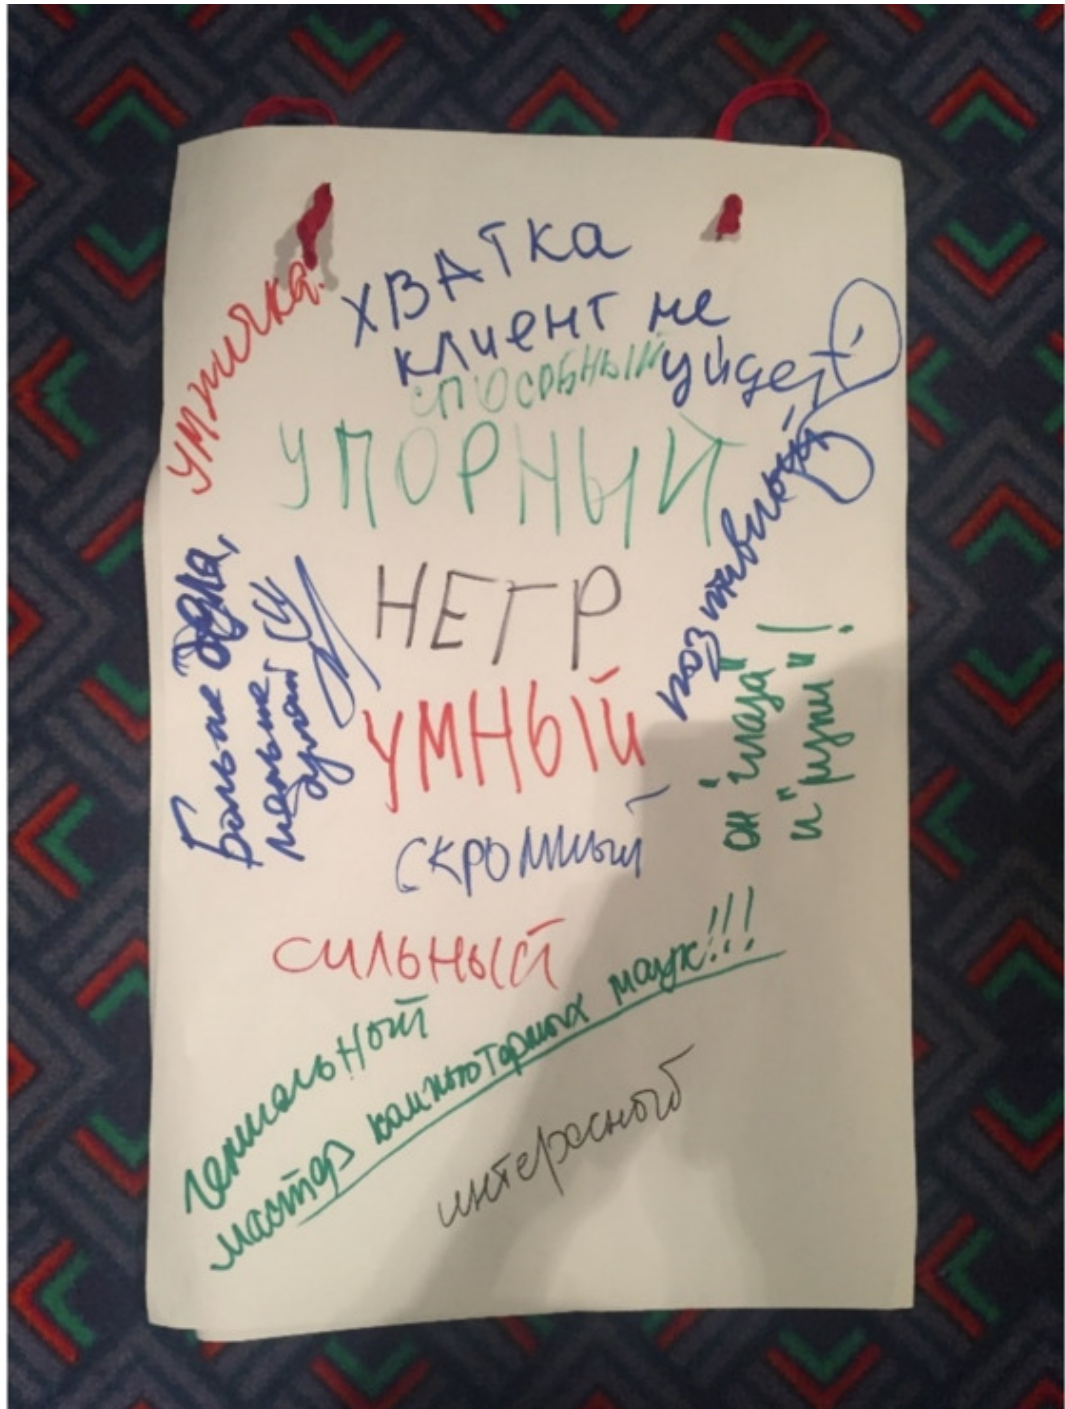 умничка!
ХВАТКА
клиент не
уйдет
способный
УПОРНЫЙ
позитивный
Больше дела,
меньше
думай
НЕГР
УМНЫЙ
он "глаза"
и "руки"!
скромный
сильный
гениальный
мастер компьютерных наук!!!
интересной